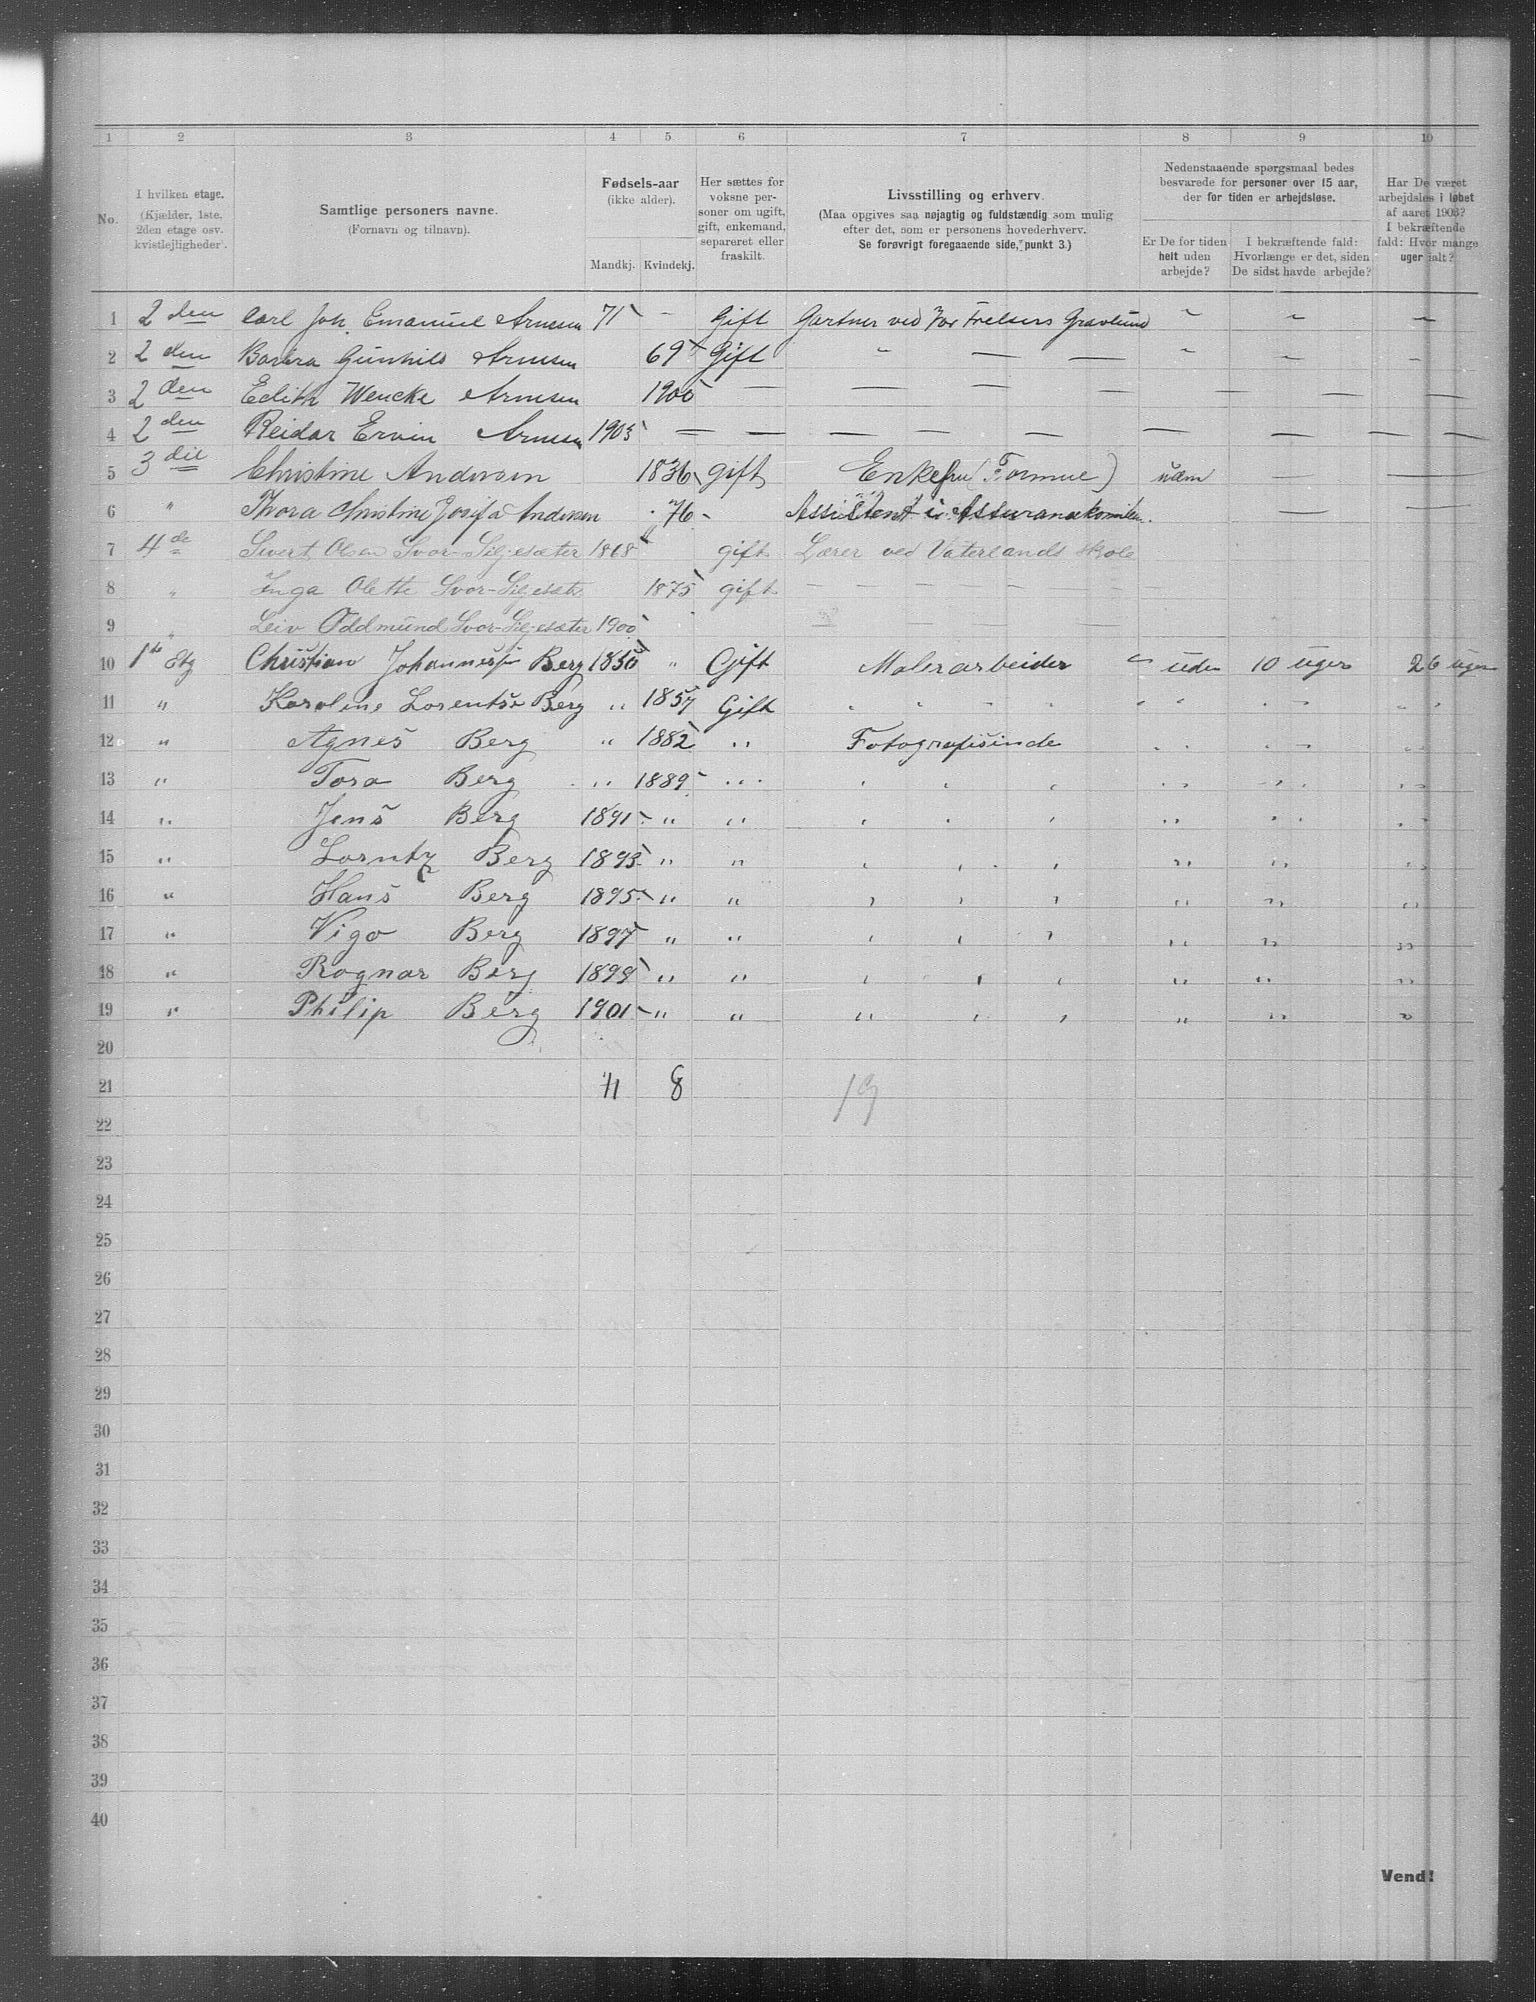 1 2 3 4 5 6 7 8 9 10
No.
I hvilken etage. (Kjælder, 1ste, 2den etage osv. kvistlejligheder).
Samtlige personers navne. (Fornavn og tilnavn).
Fødsels-aar (ikke alder). Mandkj. Kvindekj.
Her sættes for voksne personer om ugift, gift, enkemand, separeret eller fraskilt.
Livsstilling og erhverv. (Maa opgives saa nøjagtig og fuldstændig som mulig efter det, som er personens hovederhverv. Se forøvrigt foregaaende side, punkt 3.)
Nedenstaaende spørgsmaal bedes besvarede for personer over 15 aar, der for tiden er arbejdsløse.
Er De for tiden helt uden arbejde?
I bekræftende fald: Hvorlænge er det, siden De sidst havde arbejde?
Har De været arbejdsløs i løbet af aaret 1903? I bekræftende fald: Hvor mange uger ialt?
1 2 den Carl Joh. Emanuel Arnesen 71 - Gift Gartner ved Vor Frelsers Gravlund " " "
2 2 den Gunhild Arnesen 69 Gift " — — " " "
3 2 den Edith Wencke Arnesen 1900 — — — — — — —
4 2 den Reidar Ervin Arnesen 1903 — — — — — — — — — —
5 3 die Christine Andersen 1836 gift Enkefru (Formue) — —
6 " Thora Christine Josefa Andersen 76 - Assistent i — —
7 4 de Sivert Olsen Svor-Siljesæter 1868 gift Lærer ved Vaterlands skole
8 " Inga Olette Svor-Siljesæter 1875 gift — — — —
9 " Leiv Oddmund Svor-Siljesæter 1900 — — —
10 1te Etg Christian Johannes Berg 1850 " Gift Malerarbeider " uden 10 uger 26 uger
11 " Karoline Berg " 1857 Gift " " " " " " " " "
12 " Agnes Berg " 1882 " Fotografisinde " " " " "
13 " Tora Berg " 1889 " " " " " " "
14 " Jens Berg 1891 " " " " " " " "
15 " Lorntz Berg 1893 " " " " " " " "
16 " Hans Berg 1895 " " " " " " " "
17 " Vigo Berg 1897 " " " " " " " "
18 " Ragnar Berg 1899 " " " " " " " "
19 " Philip Berg 1901 " " " " " " " "
20
21 11 8 19
22
23
24
25
26
27
28
29
30
31
32
33
34
35
36
37
38
39
40
Vend!